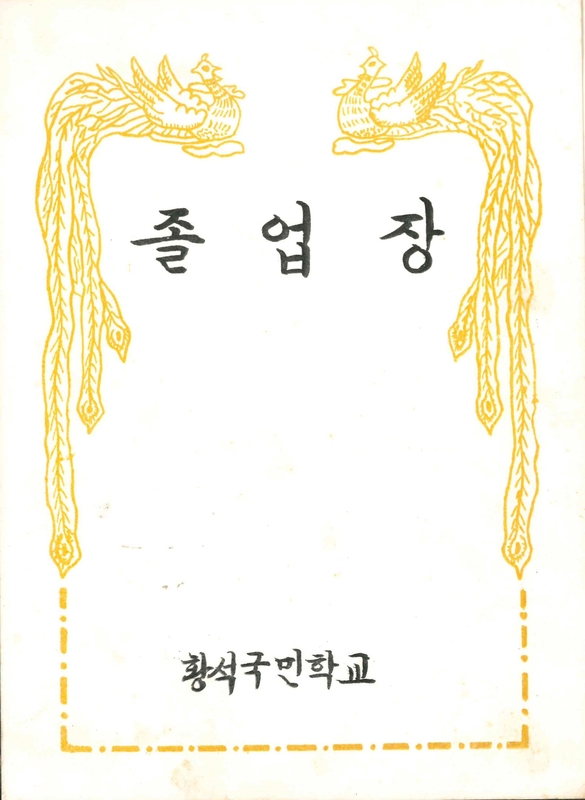 졸 업 장
황석국민학교